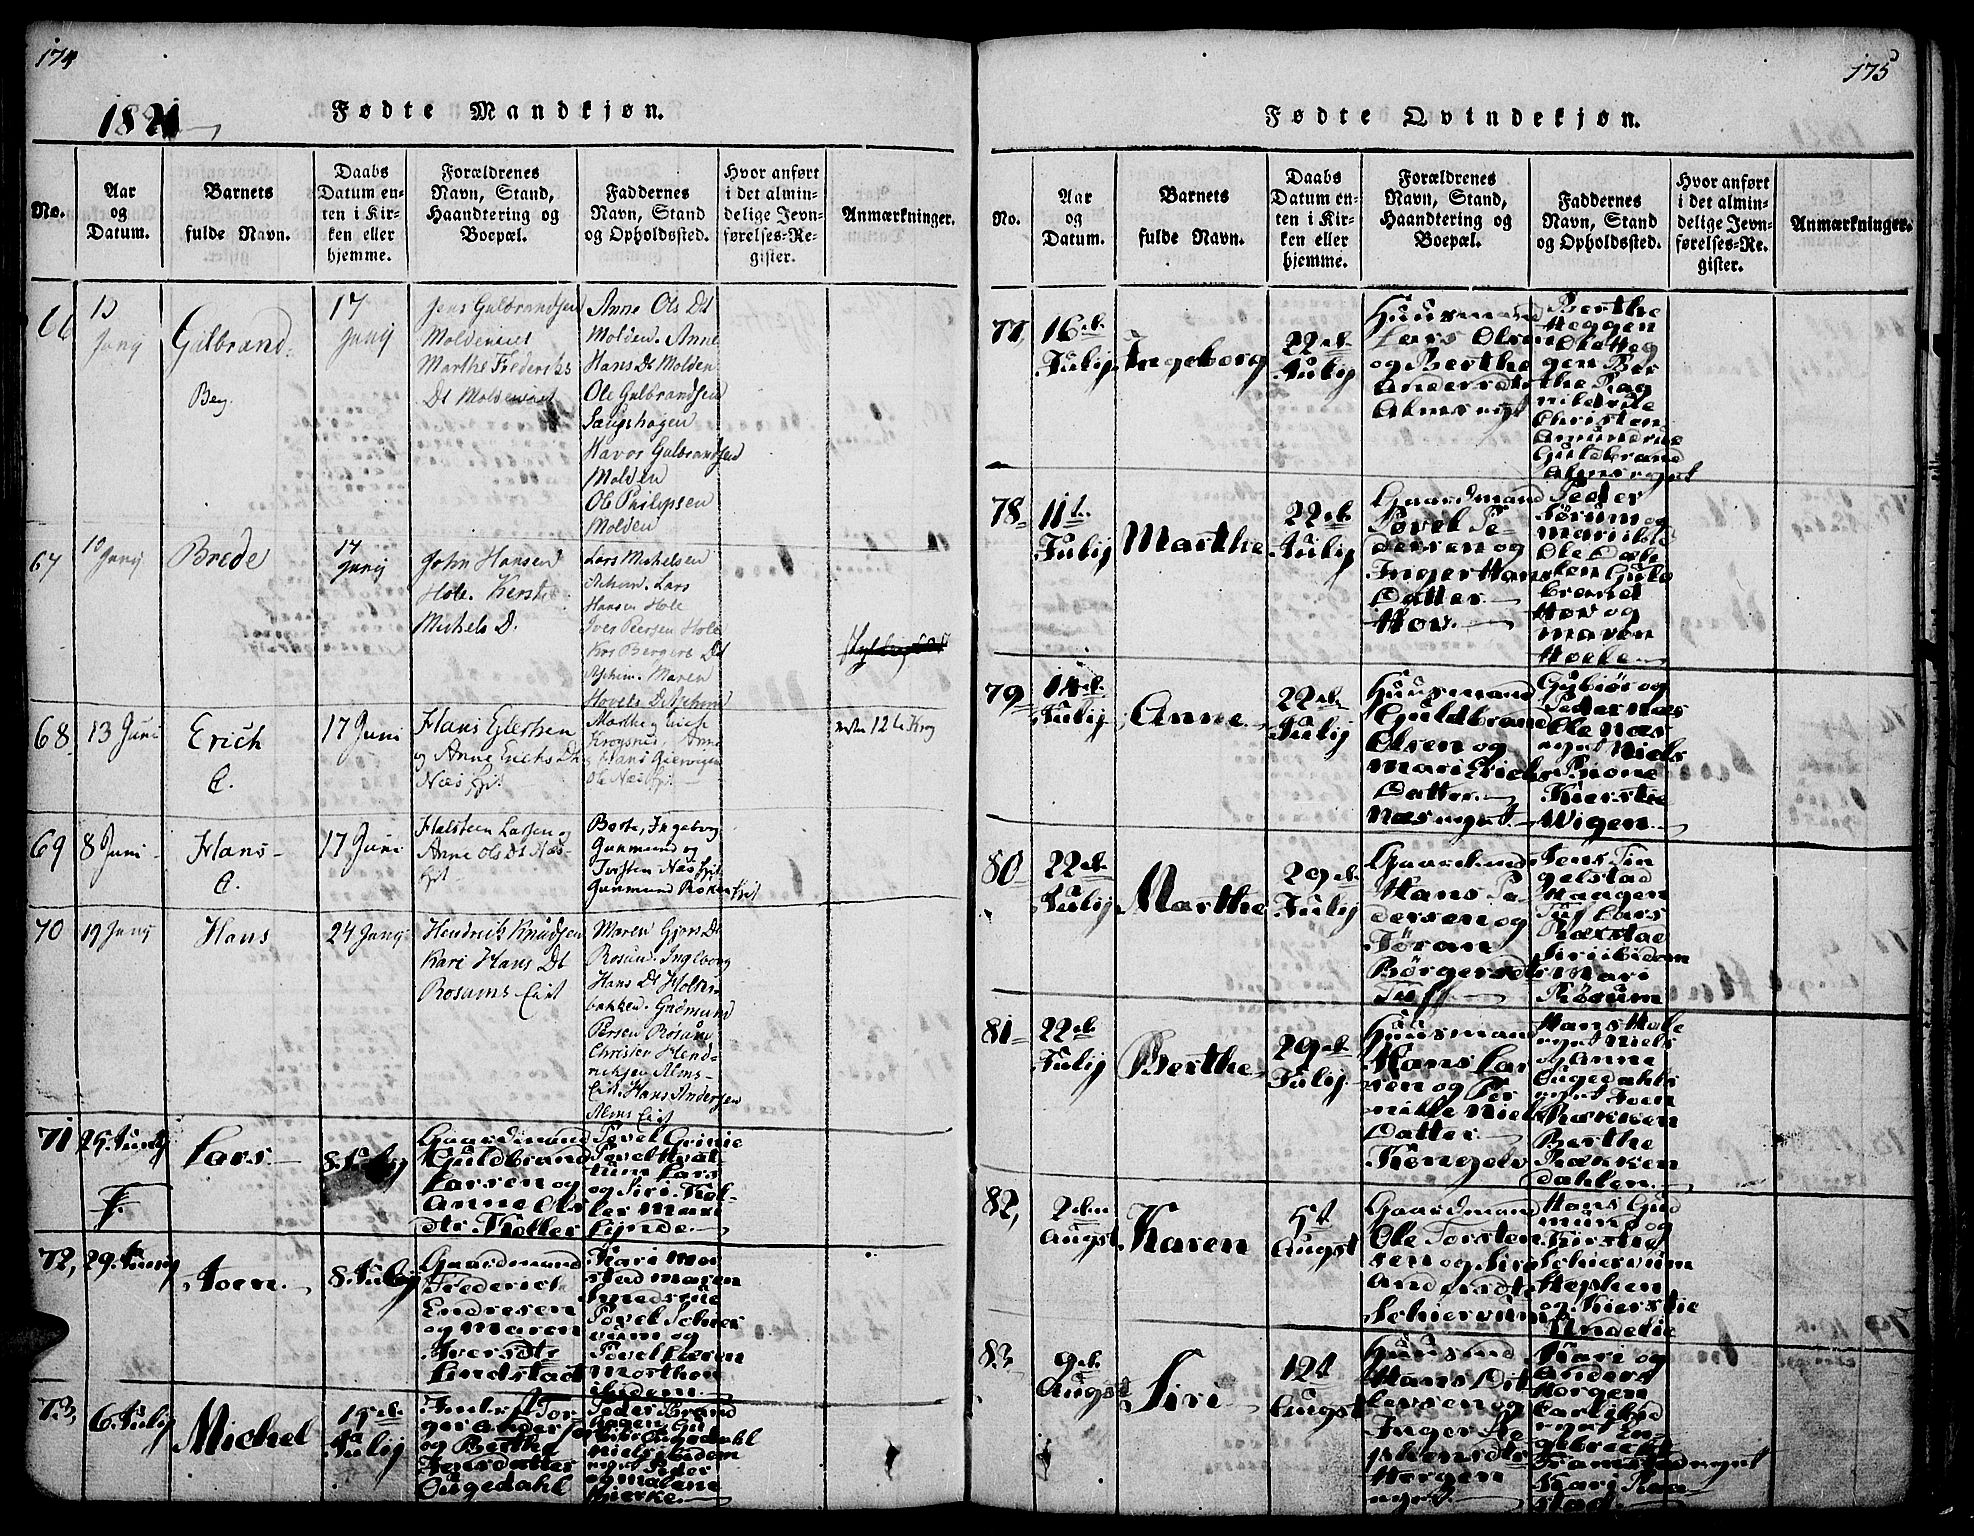 174
1821
Fødte Mandkjøn.
No.
Aar
og
Datum.
Barnets
fulde Navn.
Daabs
Datum en-
ten i Kir-
ken eller
hjemme.
Forældrenes
Navn, Stand,
Haandtering og
Boepæl.
Faddernes
Navn, Stand
og Opholdssted.
Hvor anført
i det almin-
delige Jevn-
førelses-Re-
gister.
Anmærkninger.
66
13
Junij
Gulbrand
17
Junij
Jens Gulbrandsen
Moldeniet
Marthe Frederichs
Dt
Anne Ols Dt
Molden. Anne
Hans Dt Molden
Ole Gulbrandsen
Haugshagen
Havor Gulbrandsen
Molden
Ole Philipsen
Molden
67
10 Junij
Brede
17
Junij
John Hansen
Hole. Kersti
Michels D.
Lars Michelsen
Lars
Hansen Hole
Iver Peersen Hole
Maren
68
13 Juni
Erich
17 Juni
Hans
og Anne Erichs Dt
Næs
Marthe
Krogsnes, Anne
Ole Næs
69
8 Juni
Hans
17 Juni
Halsteen Larsen og
Anne Ols Dt Næs
Berte, Ingeborg
Gunmund og
Torsten Næs
Gunmund
70
19 Junij
Hans
24 Junij
Hendrick Knudsen
Kari Hans Dt
Rosums
Maren Gjors Dt
Rosum. Ingeborg
Hans Dt Holten-
bakken. Gudmund
Persen Røsum
Christen Hend-
richsen Alms-
Hans Andersen
Alms
71
25. Junij
Lars
8. Julij
Gaardmand
Guldbrand
Larsen og
Anne Ols
dtr. Koller
Povel Grinie
Povel Hvat-
tum Lars
og Siri Kol-
ler Mari
Lynde.
72,
29. Junij
Joen.
8. Julij
Gaardmand
Frederich
Endresen
og Maren
Iversdtr
Lindstad
Kari Mor
stad Maren
Smedsrue
Povel Schier
vum og
Povel Leeren
Morthen
ibidem.
73,
6. Julij
Michel
15de
Julij
Andersen
og Berthe
Jensdatter
Ougedahl
Peder Brand
hagen
Ougedahl
Niels ibidem
Peder
og Malene
Bierke.
175
Fødte Qvindekjøn.
No.
Aar
og
Datum.
Barnets
fulde Navn.
Daabs
Datum en-
ten i Kir-
ken eller
hjemme.
Forældrenes
Navn, Stand,
Haandtering og
Boepæl.
Faddernes
Navn, Stand
og Opholdssted.
Hvor anført
i det almin-
delige Jevn-
førelses-Re-
gister.
Anmærkninger.
77,
16de
Julij
Ingeborg
22de
Julij
Huusmand
Lars Olsen
og Berthe
Andersdtr
Almseigt
Berthe
Heggen
Ole Heg
gen Ber
the Rag
nildsrde
Christen
Amundrue
Guldbrand
Almseigt
78
11te
Julij
Marthe
22de
Julij
Gaardmand
Povel Pe
dersen og
Inger Hans
Datter
Hov.
Peder
Sørum og
Marihle
Ole Dæle
len Guld
brand
Hov og
Maren
Hoele
79
14de
Julij
Anne
22de
Julij
Huusmand
Guldbrand
Olsen og
Mari Erichs
Datter
Næs
Gubiør og
Peder Næs
Ole Næs
Niels
Kierstie
Wigen.
80
22de
Julij
Marthe
29de
Julij
Gaardmand
Hans Pe
dersen og
Jøran
Børgersdtr
Tuff
Jens Tin
gelstad
Haagen
Tuf Lars
Røkstad
Siri ibidem
Mari
Røsum
81
22de
Julij
Berthe
29de
Julij
Huusmand
Hans Lar
sen og Per
nille Niels
Datter
Kongels
Hans Hole
Niels
og Anne
Ougedahls
Joen
Bakken
Berthe
Bakken
dahlen.
82,
2den
Augst.
Karen
5t
Augst
Gaardmand
Ole Torsten
sen og Siri
Andersdtr
Schiervum
Hans Gud
mund og
Kirstie
Schiervum
Stephen
og Kierstie
Undelie
83,
9de
Augst
Siri
12t
Augst
Huusmd
Hans Dit
levsen og
Inger Ste
phensdtr
Horgen
Kari og
Anders
Horgen
Carl ibid
En
gebrecht
Framstad
Kari Raa
stad.